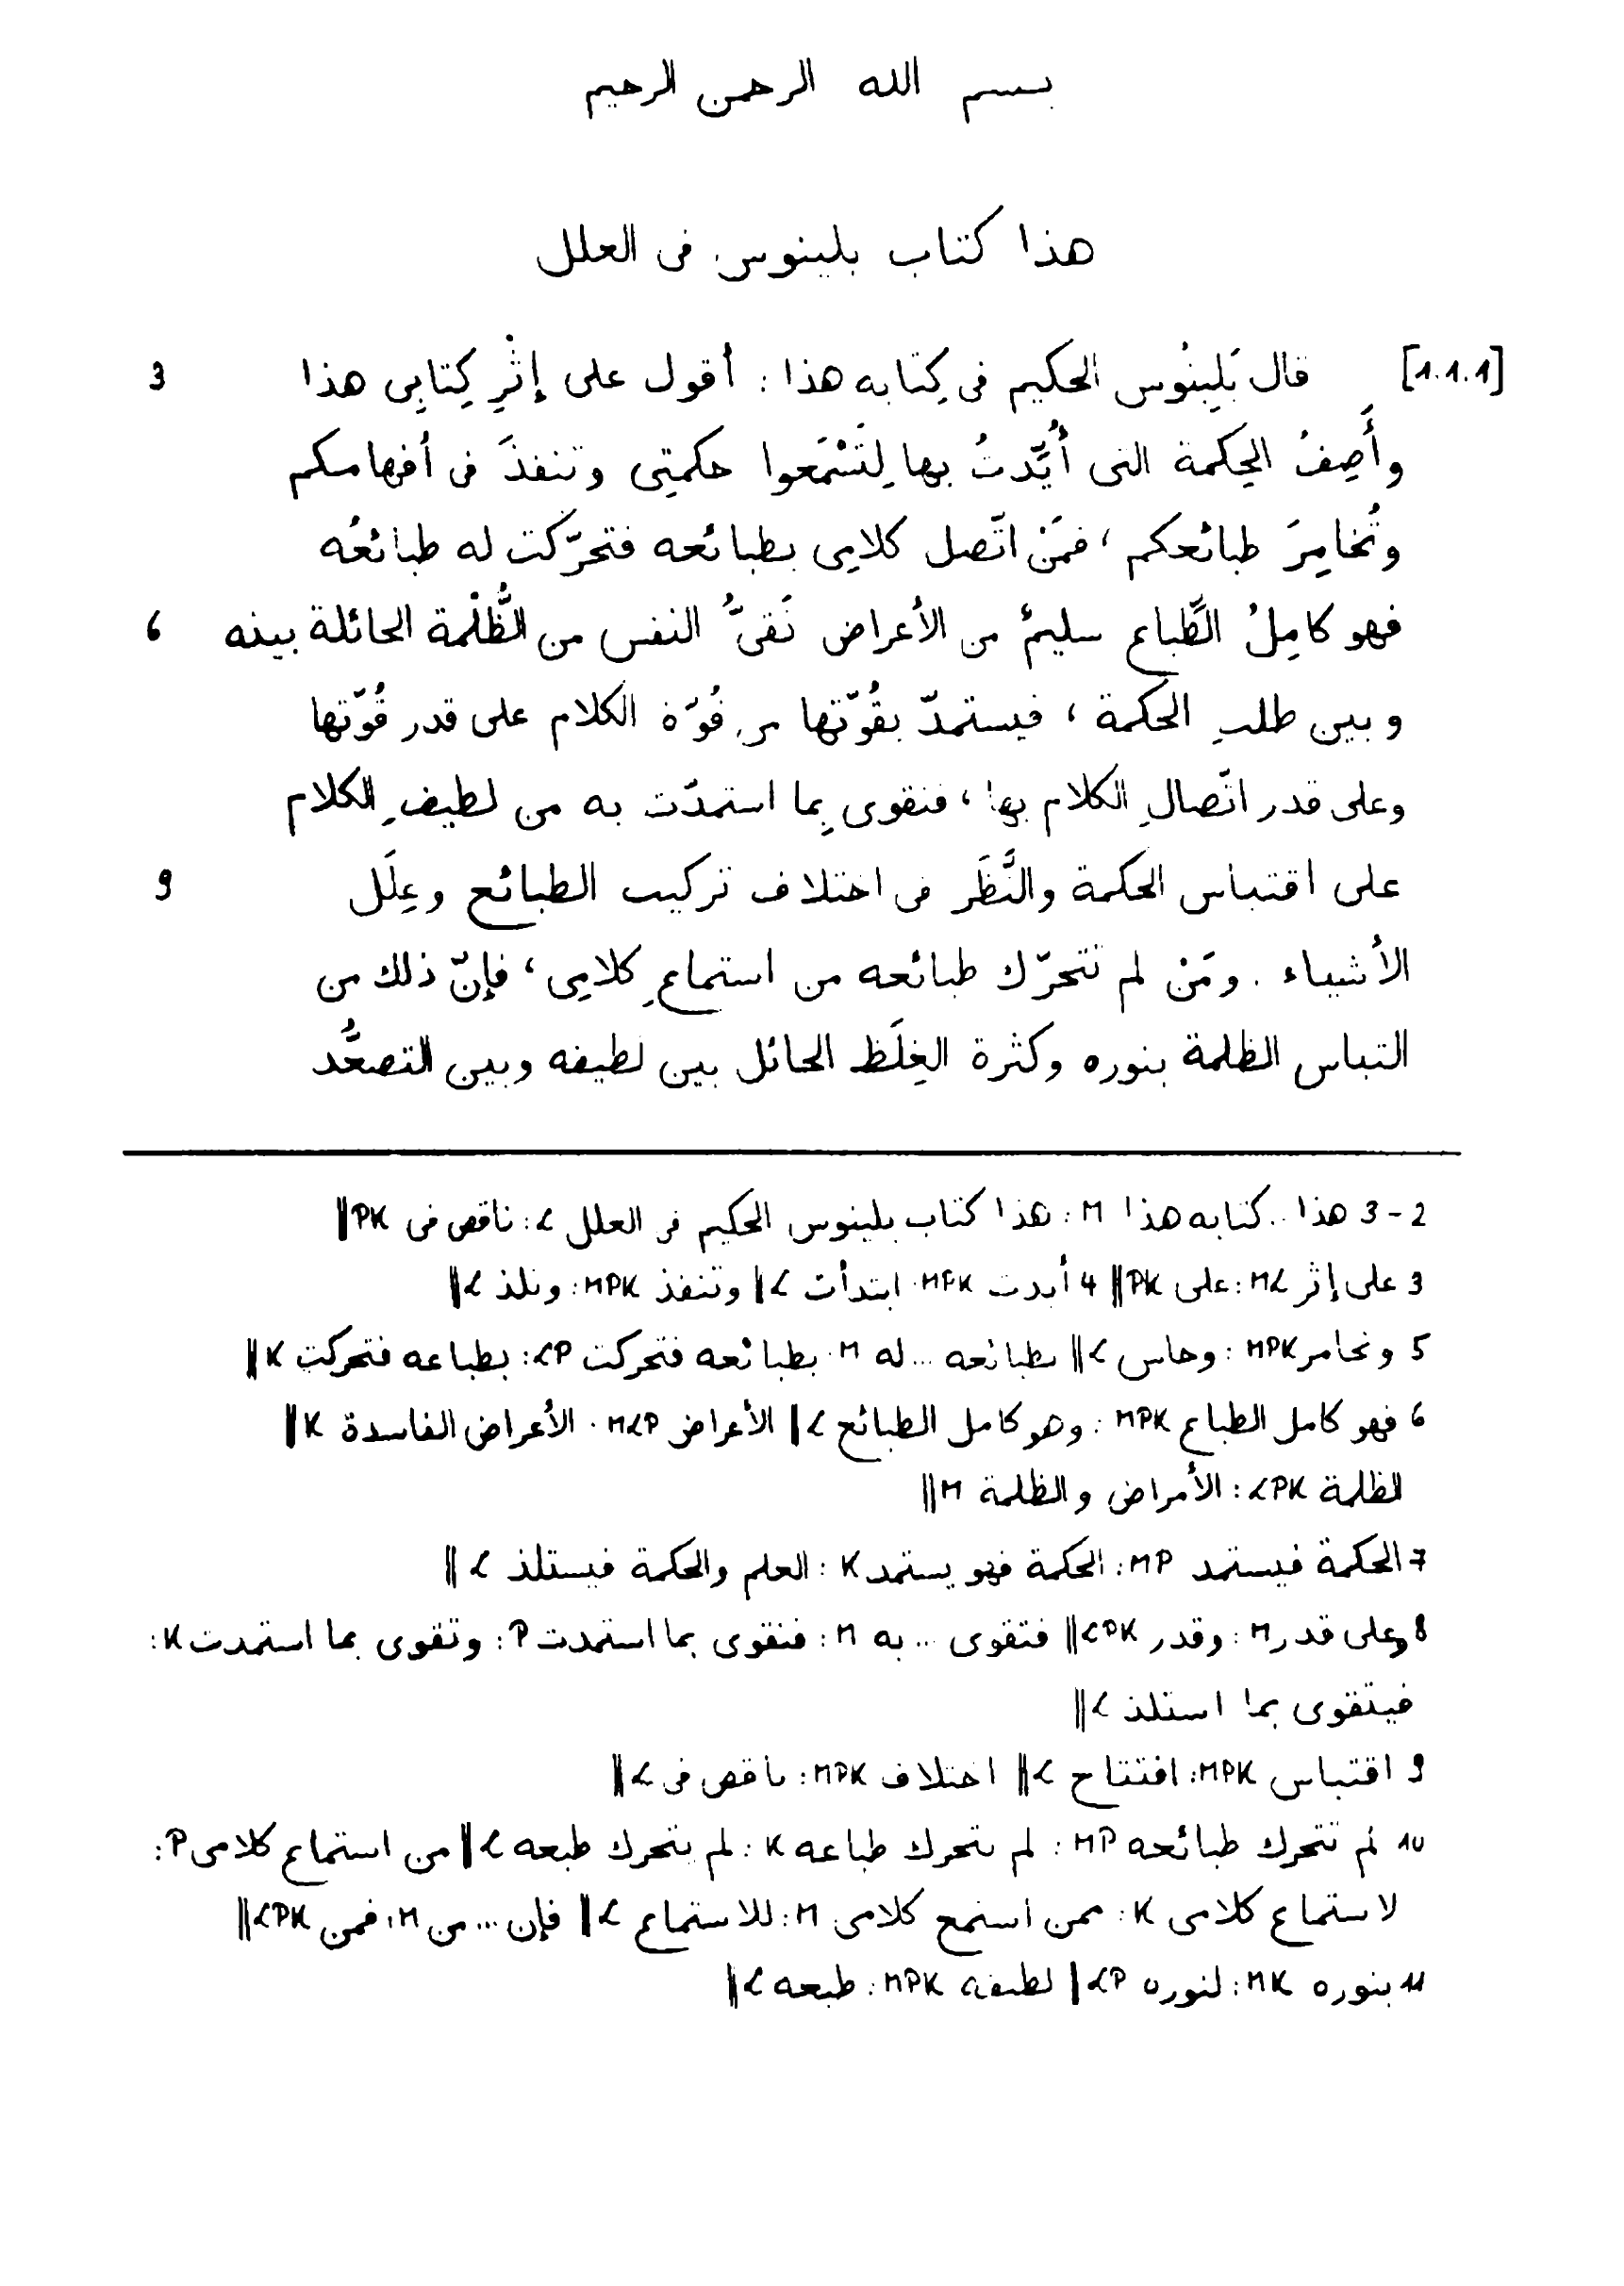 بسم الله الرحمن الرحيم
هذا كتاب بلينوس فى العلل
[1.1.1] قال بَلِينُوس الحكيم فى كِتابه هذا : أقول على إثْرِ كِتابِى هذا 3
وأَصِفُ الحِكمة التى أُيِّدتُ بها لِتَسْمَعوا حكمتِى وتنفذَ فى أفهامكم
وتُخامِرَ طبائعكم ، فمَنْ اتّصل كلامِى بطبائعه فتحرّكت له طبائعُه
فهو كامِلُ الطِّباع سليمُ من الأعراض نَقىُّ النفس من الظُّلْمة الحائلة بينه 6
وبين طلبِ الحكمة ، فيستمدّ بقُوّتها من قُوّة الكلام على قدر قُوّتها
وعلى قدر اتّصالِ الكلام بها ، فتقوى بِما استمدّت به من لطيفِ الكلام
على اقتباس الحكمة والنَّظَر فى اختلاف تركيب الطبائع وعِلَل 9
الأشياء . ومَنْ لم تتحرّك طبائعه من استماعِ كلامِى ، فإنّ ذلك من
التباس الظلمة بنوره وكثرة الغِلَظ الحائل بين لطيفه وبين التصعُّد
2-3 هذا .. كتابه هذا M : هذا كتاب بلينوس الحكيم فى العلل L : ناقص فى PK ||
3 على إثر ML : على PK || 4 أيدت MPK : ابتدأت L || وتنفذ MPK : وتلذ L ||
5 وتخامر MPK : وحاس L || بطبائعه ... له M : بطبائعه فتحركت LP : بطباعه فتحركت K ||
6 فهو كامل الطباع MPK : وهو كامل الطبائع L || الأعراض MLP : الأعراض الفاسدة K ||
الظلمة LPK : الأمراض والظلمة M ||
7 الحكمة فيستمد MP : الحكمة فهو يستمد K : العلم والحكمة فيستلذ L ||
8 وعلى قدر M : وقدر LPK || فتقوى ... به M : فتقوى بما استمدت P : وتقوى بما استمدت K :
فيتقوى بما استلذ L ||
9 اقتباس MPK : افتتاح L || اختلاف MPK : ناقص فى L ||
10 لم تتحرك طبائعه MP : لم تتحرك طباعه K : لم يتحرك طبعه L || من استماع كلامى P :
لاستماع كلامى K : ممن استمع كلامى M : للاستماع L || فإن ... من M : فمن LPK ||
11 بنوره MK : لنوره LP || لطيفه MPK : طبعه L ||